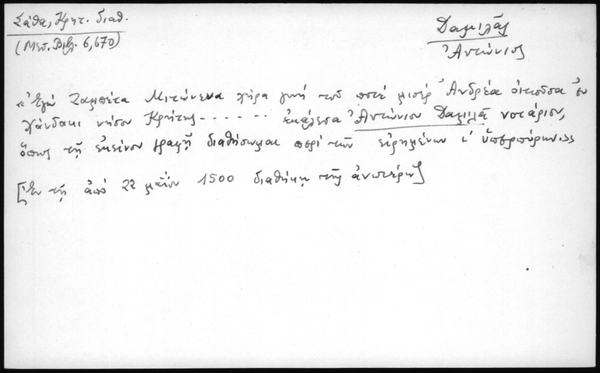 Σάθα, Κρητ. διαθ.
(Μεσ. Βιβλ. 6, 670)
Δαμιλᾶς
Ἀντώνιος
«Ἐγὼ Ζαμπέτα χήρα γυνὴ τοῦ ποτὲ μισὲρ Ἀνδρέα ὁποῦσα ἐν
Χάνδακι νήσου Κρήτης - - - - - - ἐκάλεσα Ἀντώνιον Δαμιλᾶ νοτάριον,
ὅπως τῇ ἐκείνου γραφῇ διαθήσωμαι περὶ τῶν εἰρημένων
[Ἐν τῇ ἀπὸ 22 μαΐου 1500 διαθήκῃ τῆς ἀνωτέρω]